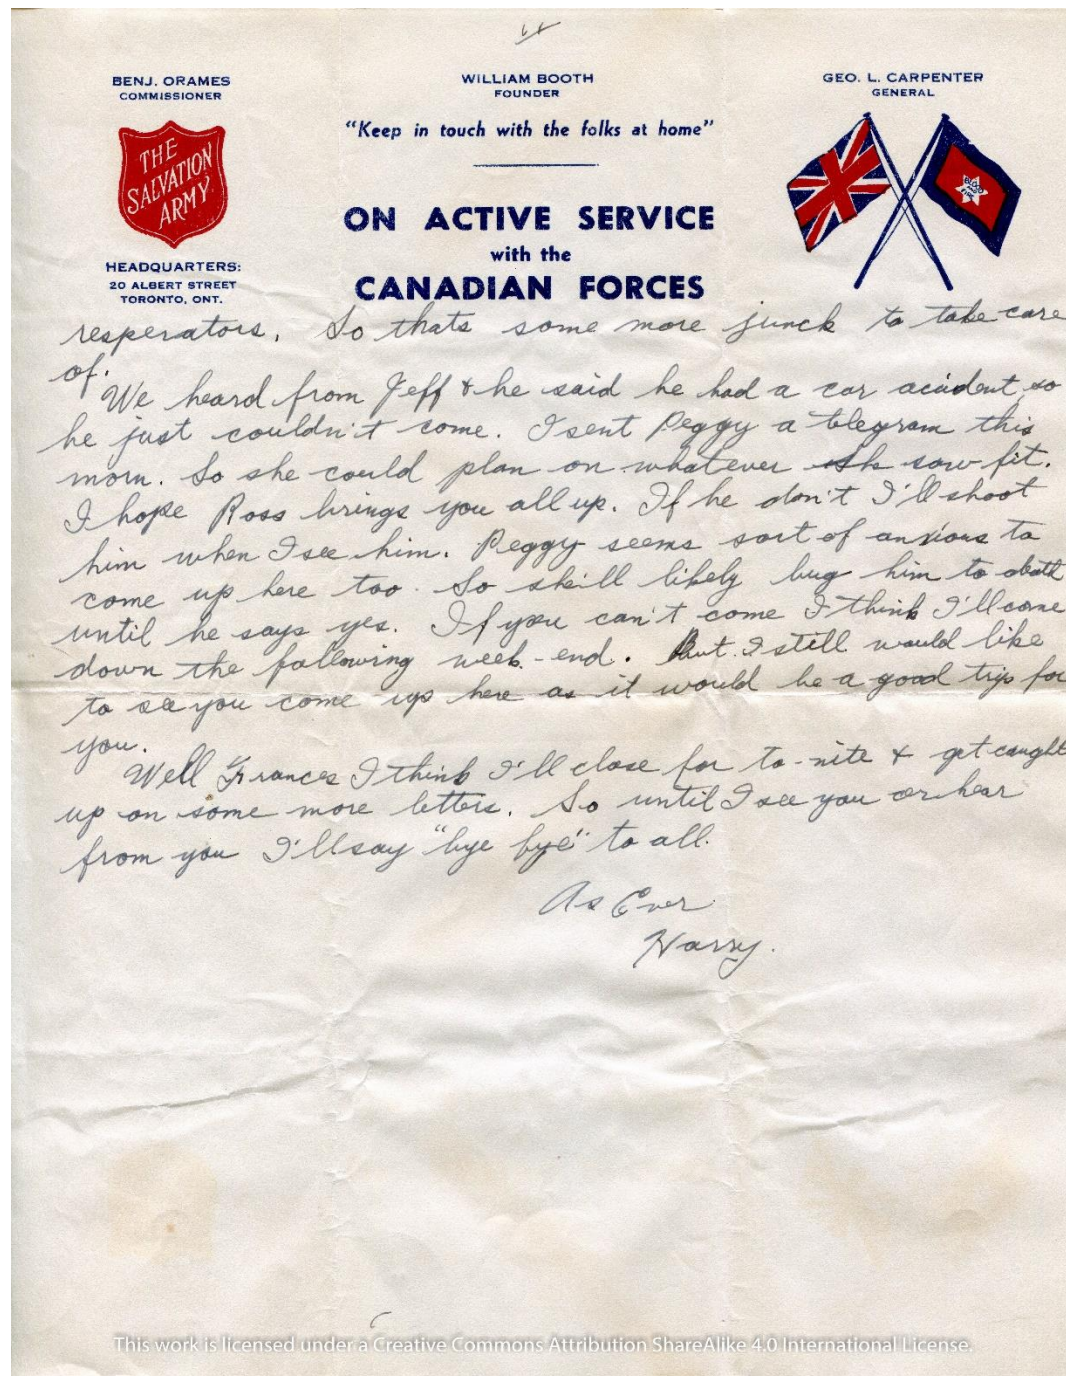 BENJ. ORAMES
COMMISSIONER
THE
SALVATION
ARMY
HEADQUARTERS:
20 ALBERT STREET
TORONTO, ONT.
WILLIAM BOOTH
FOUNDER
"Keep in touch with the folks at home"
ON ACTIVE SERVICE
with the
CANADIAN FORCES
GEO. L. CARPENTER
GENERAL
BLOOD
AND
FIRE
resperators. So thats some more junck to take care
of.
We heard from Jeff & he said he had a car acident so
he just couldn't come. I sent Peggy a telegram this
morn. So she could plan on whatever she saw fit.
I hope Ross brings you all up. If he don't I'll shoot
him when I see him. Peggy seems sort of anxious to
come up here too. So she'll likely bug him to death
until he says yes. If you can't come I think I'll come
down the following week-end. But I still would like
to see you come up here as it would be a good trip for
you.
Well Frances I think I'll close for to-nite & get caught
up on some more letters. So until I see you or hear
from you I'll say "bye bye" to all.
As Ever
Harry.
This work is licensed under a Creative Commons Attribution ShareAlike 4.0 International License.